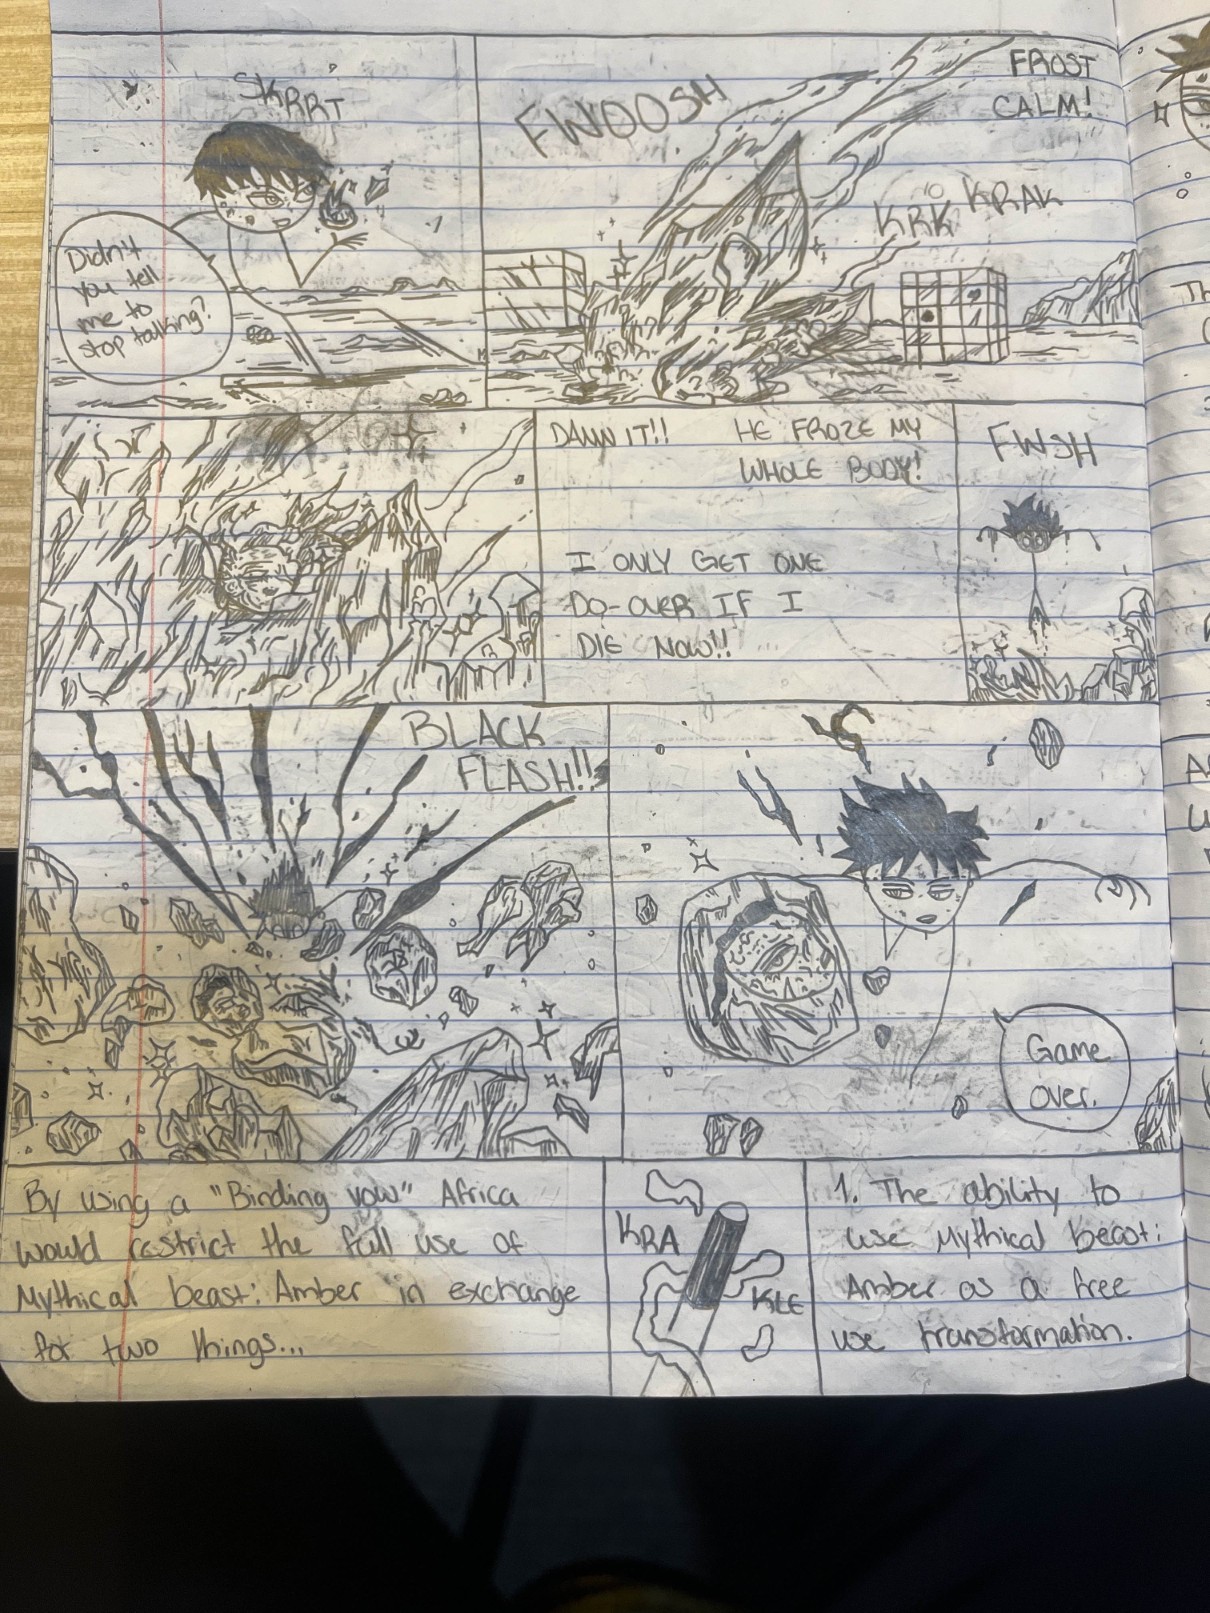 SKRRT
Didn't
you tell
me to
stop talking?
FWOOSH
FROST
CALM!
KRK KRAK
DAMN IT!!
HE FROZE MY
WHOLE BODY!
I ONLY GET ONE
DO-OVER IF I
DIE NOW!!
FWSH
BLACK
FLASH!!
Game
over.
By using a "Binding vow" Africa
would restrict the full use of
Mythical beast: Amber in exchange
for two things...
KRA
KLE
1. The ability to
use Mythical beast:
Amber as a free
use transformation.